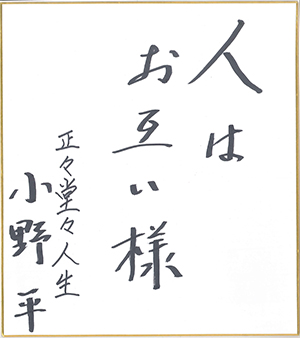 人は
お互い様
正々堂々人生
小野平